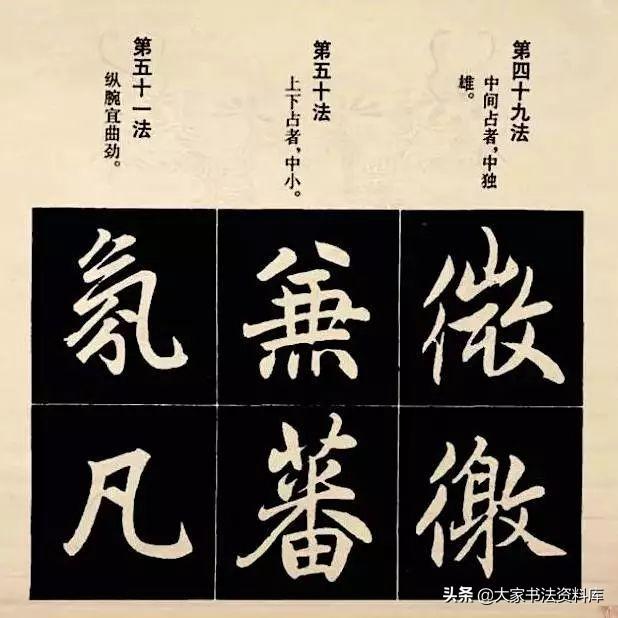 第四十九法
中间占者，中独
雄。
微
徼
第五十法
上下占者，中小。
兼
蕃
第五十一法
纵腕宜曲劲。
氛
凡
头条 @大家书法资料库